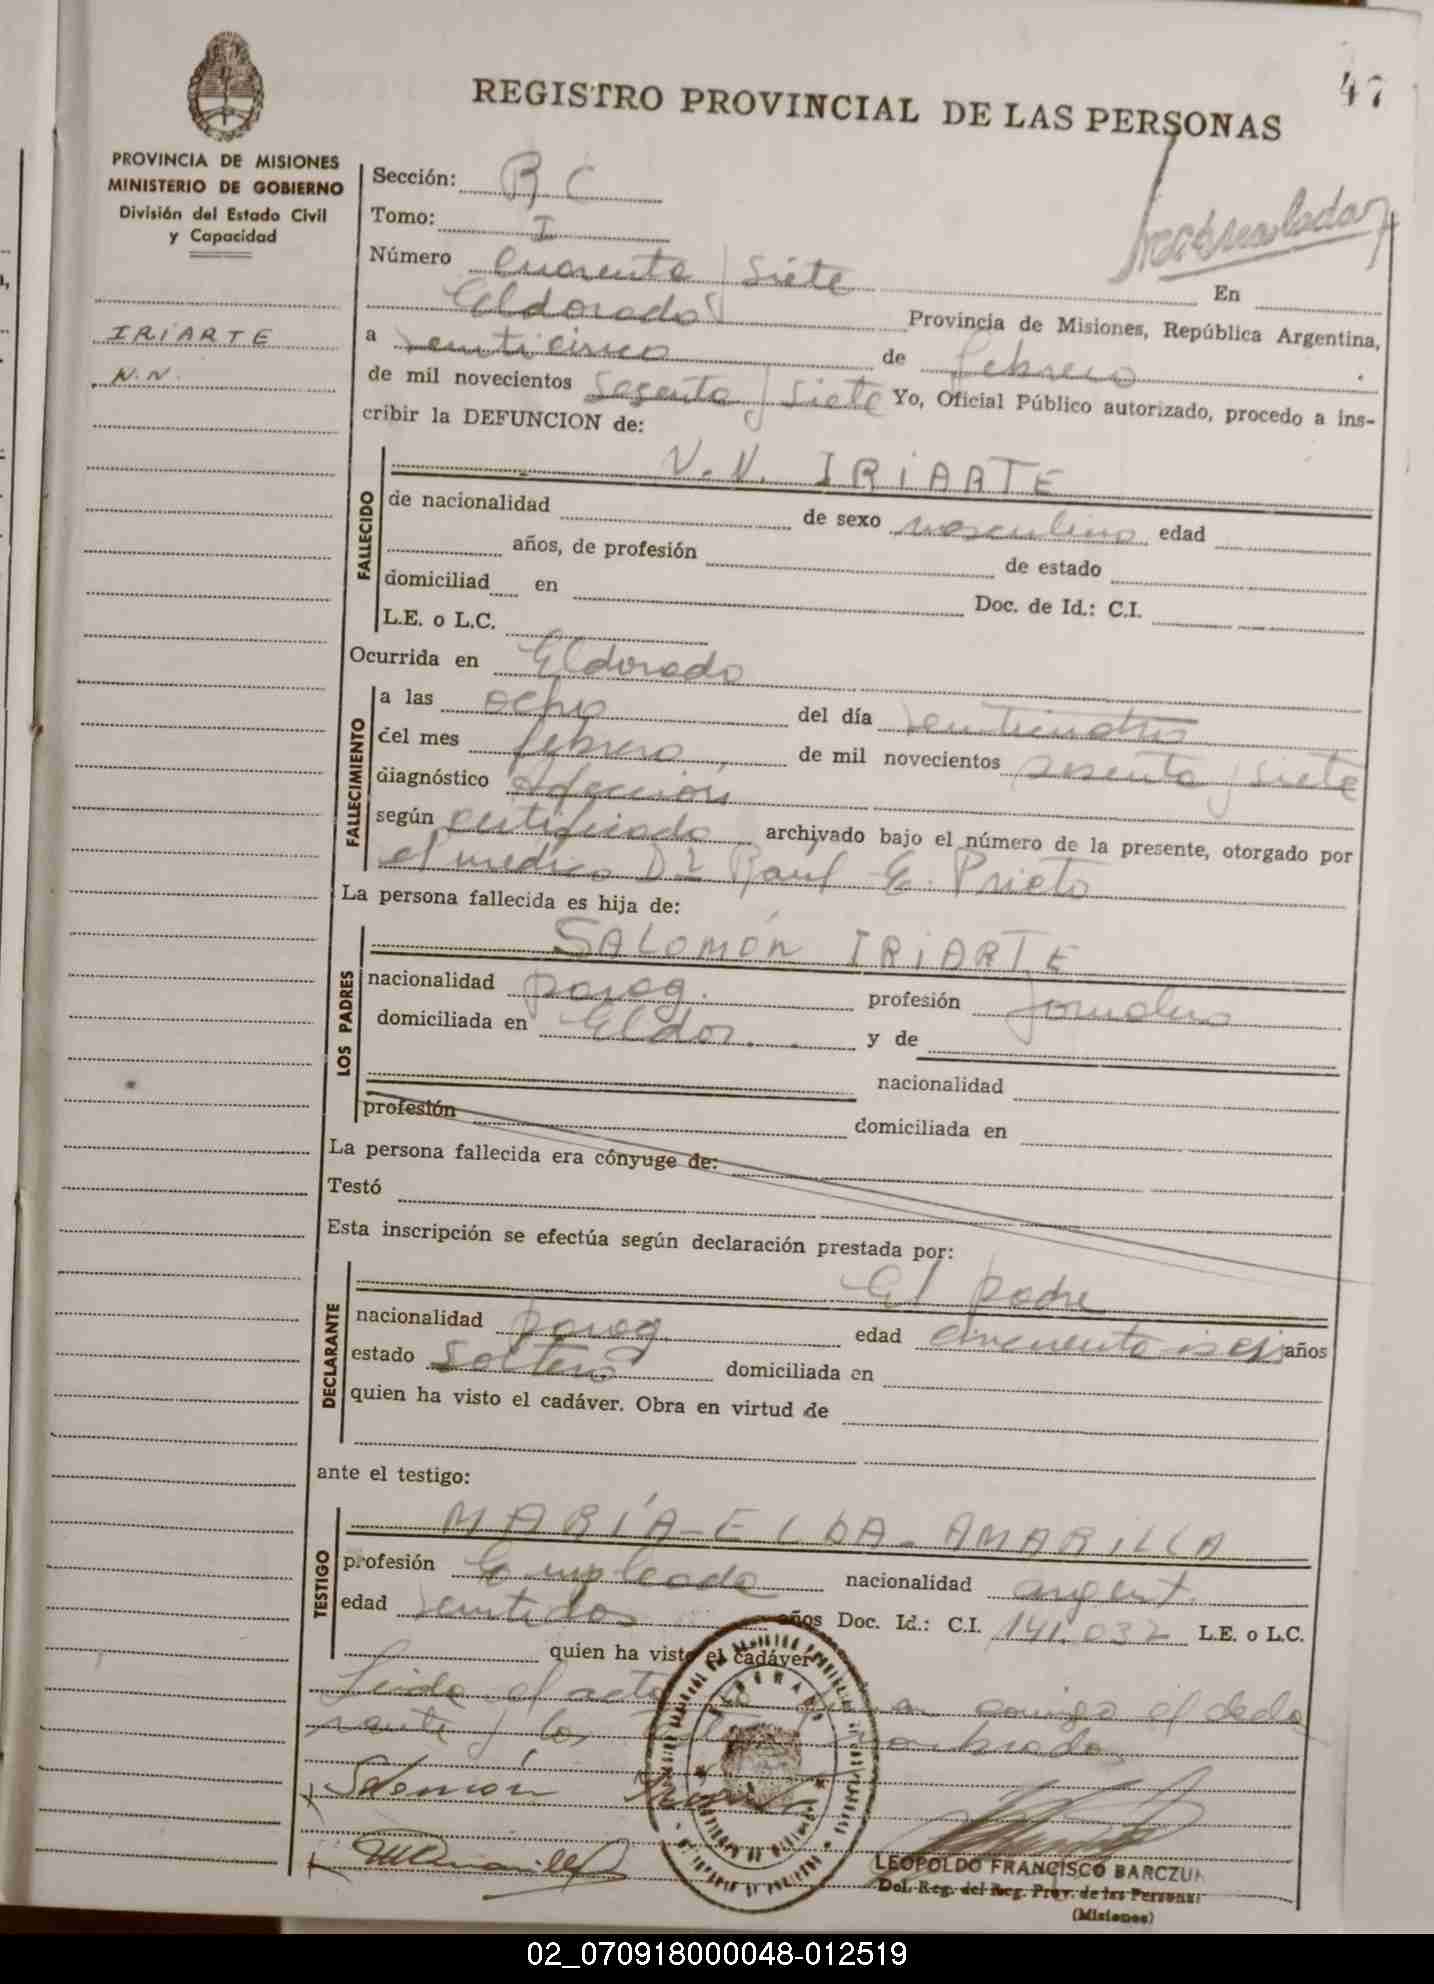 47
REGISTRO PROVINCIAL DE LAS PERSONAS
PROVINCIA DE MISIONES
MINISTERIO DE GOBIERNO
División del Estado Civil
y Capacidad
IRIARTE
N.N.
Sección: B C
Tomo: I
Número Cuarenta y siete En
Eldorado Provincia de Misiones, República Argentina,
a veinticinco de febrero
de mil novecientos sesenta y siete Yo, Oficial Público autorizado, procedo a ins-
cribir la DEFUNCION de:
N.N. IRIARTE
FALLECIDO
de nacionalidad de sexo masculino edad
años, de profesión de estado
domiciliad en Doc. de Id.: C.I.
L.E. o L.C.
Ocurrida en Eldorado
FALLECIMIENTO
a las ocho del día
del mes febrero de mil novecientos sesenta y siete
diagnóstico
según certificado archivado bajo el número de la presente, otorgado por
el médico Dr Raúl E. Prieto
La persona fallecida es hija de:
LOS PADRES
SALOMÓN IRIARTE
nacionalidad parag. profesión jornalero
domiciliada en Eldor. y de
nacionalidad
profesión domiciliada en
La persona fallecida era cónyuge de:
Testó
Esta inscripción se efectúa según declaración prestada por:
DECLARANTE
El padre
nacionalidad parag. edad cincuenta i seis años
estado soltero domiciliada en
quien ha visto el cadáver. Obra en virtud de
ante el testigo:
TESTIGO
MARÍA-ELDA-AMARILLA
profesión Empleada nacionalidad argent.
edad veintidos años Doc. Id.: C.I. 141.032 L.E. o L.C.
quien ha visto el cadáver
Leida el acta la firman conmigo el decla
rante y los nombrado
Salomón Iriarte
MAmarilla
LEOPOLDO FRANCISCO BARCZUK
Del. Reg. del Reg. Prov. de las Personas
(Misiones)
02_070918000048-012519